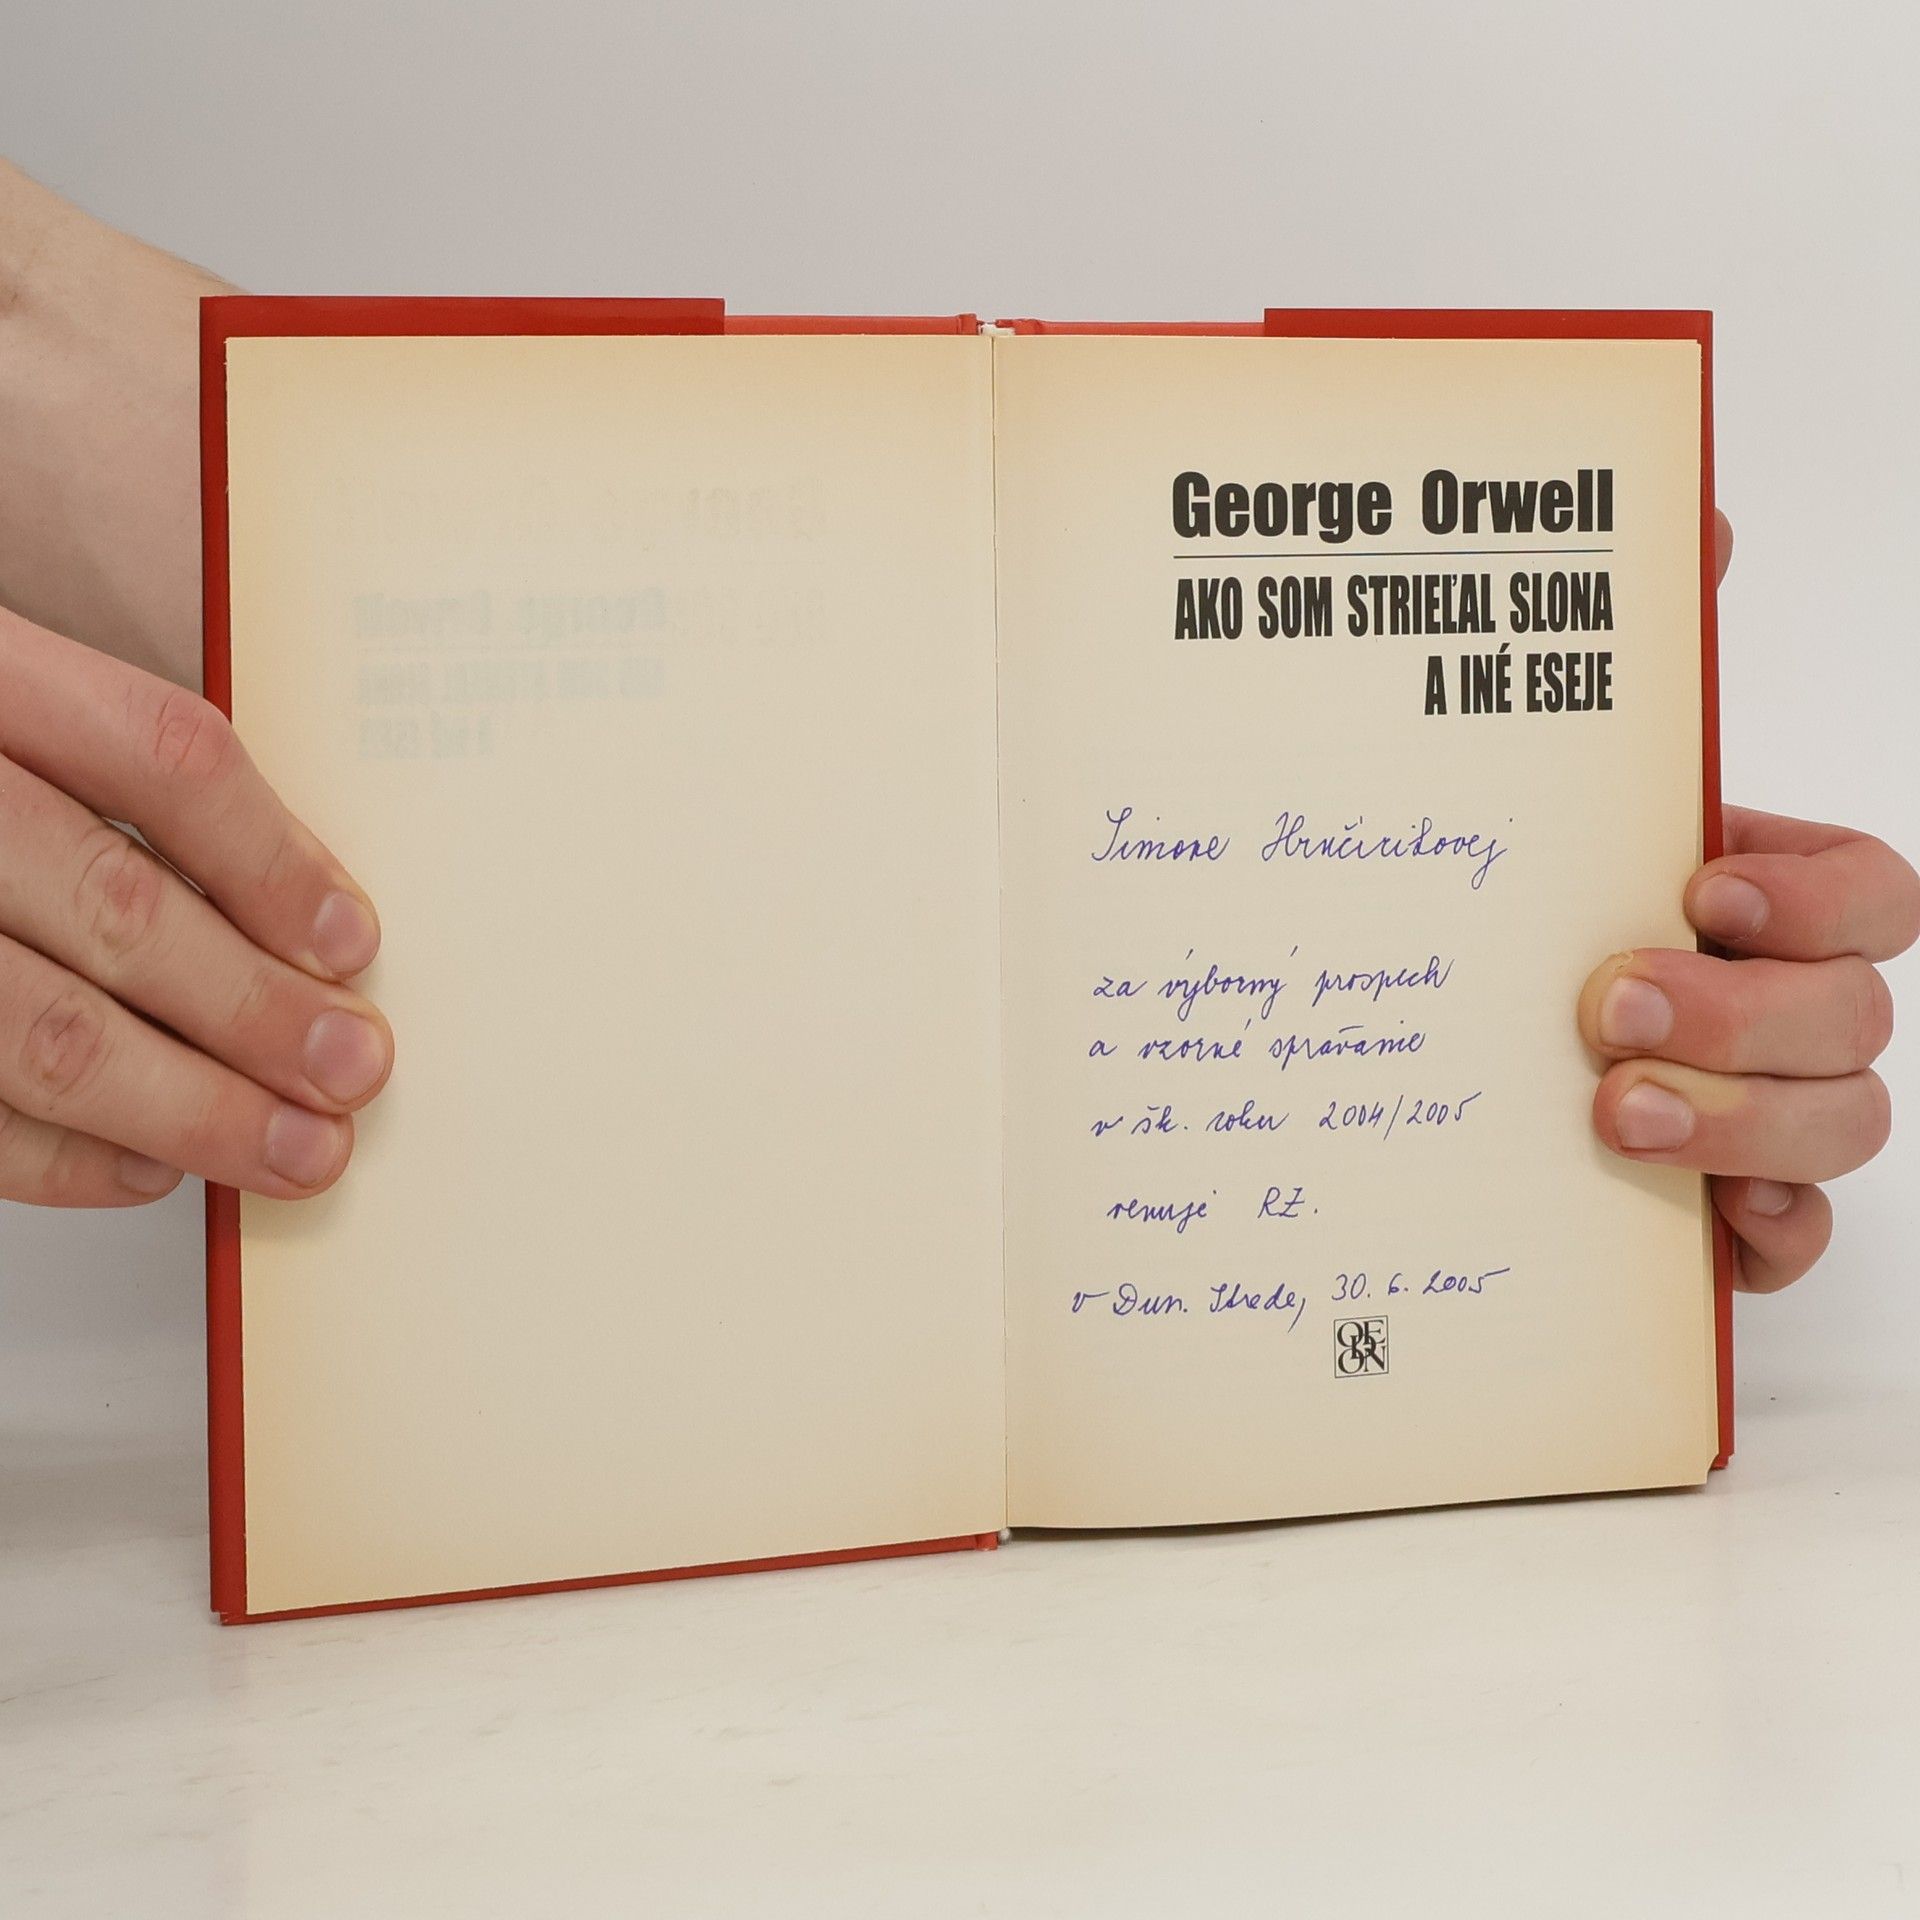 George Orwell
AKO SOM STRIEĽAL SLONA
A INÉ ESEJE
Simone Hrnčirikovej
za výborný prospech
a vzorné správanie
v šk. roku 2004/2005
venuje RZ.
v Dun. Strede, 30. 6. 2005
ODEON